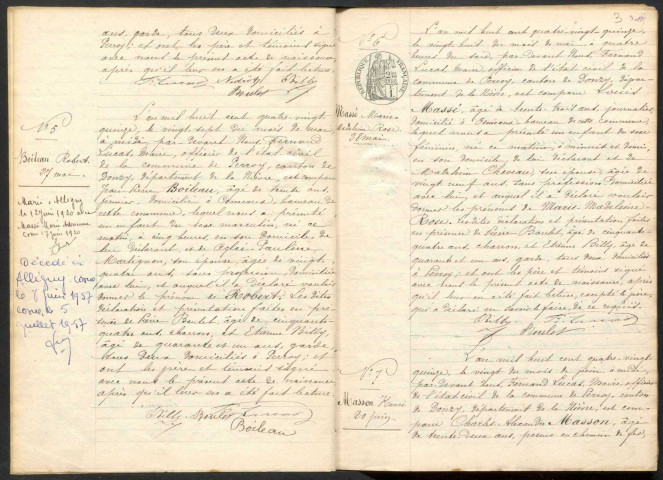 ans, garde, tous deux domiciliés à
Perroy; et ont les père et témoins signé
avec nous le présent acte de naissance,
après qu'il leur en a été fait lecture.
Billy
Boulet
N° 5
Boileau Robert
27 mai
Marié à Alligny
le
Décédé à
Alligny-Cosne
le 7 juin 1957
Cosne, le 5
juillet 1957
L'an mil huit cent quatre-vingt
quinze, le vingt-sept du mois de mai,
à midi, par devant Nous, Fernand
Lucas, Maire, officier de l'état civil
de la commune de Perroy, canton de
Donzy, département de la Nièvre, est comparu
Jean Pierre Boileau, âgé de trente ans,
fermier, domicilié à hameau de
cette commune, lequel nous a présenté
un enfant du sexe masculin, né ce
matin, à cinq heures, en son domicile, de
lui déclarant et de Pauline
Martignon, son épouse, âgée de vingt-
quatre ans, sans profession, domiciliée
avec lui, et auquel il a déclaré vouloir
donner le prénom de Robert. Les dites
déclaration et présentation faites en pré-
sence de Pierre Boulet, âgé de cinquante-
quatre ans, charron, et Etienne Billy,
âgé de quarante et un ans, garde,
tous deux domiciliés à Perroy; et
ont les père et témoins signé
avec nous le présent acte de naissance
après qu'il leur en a été fait lecture.
Billy Boulet
Boileau
3
N° 6
RÉPUBLIQUE FRANÇAISE
Massé Marie
Madeleine Rose
28 mai
L'an mil huit cent quatre-vingt-quinze,
le vingt-huit du mois de mai à quatre
heures du soir, par devant Nous, Fernand
Lucas, Maire, officier de l'état civil de la
commune de Perroy, canton de Donzy, dépar-
tement de la Nièvre, est comparu Louis
Massé, âgé de trente-trois ans, journalier,
domicilié à hameau de cette commune,
lequel nous a présenté un enfant du sexe
féminin, né ce matin, à minuit et demi,
en son domicile, de lui déclarant et de
Madeleine son épouse, âgée de
vingt-neuf ans, sans profession, domiciliée
avec lui, et auquel il a déclaré vouloir
donner les prénoms de Marie Madeleine
Rose. Lesdites déclaration et présentation faites
en présence de Pierre Boulet, âgé de cinquante-
quatre ans, charron, et Etienne Billy, âgé de
quarante et un ans, garde, tous deux domiciliés
à Perroy; et ont les père et témoins signé
avec nous le présent acte de naissance, après
qu'il leur en a été fait lecture, excepté le père,
qui a déclaré ne savoir le faire, de ce requis.
Billy
Boulet
N° 7
Masson
20 juin
L'an mil huit cent quatre-vingt
quinze, le vingt du mois de juin à midi,
par devant Nous, Fernand Lucas, Maire, officier
de l'état civil de la commune de Perroy, canton
de Donzy, département de la Nièvre, est com-
paru Charles Alexandre Masson, âgé
de trente deux ans, poseur au chemin de fer,